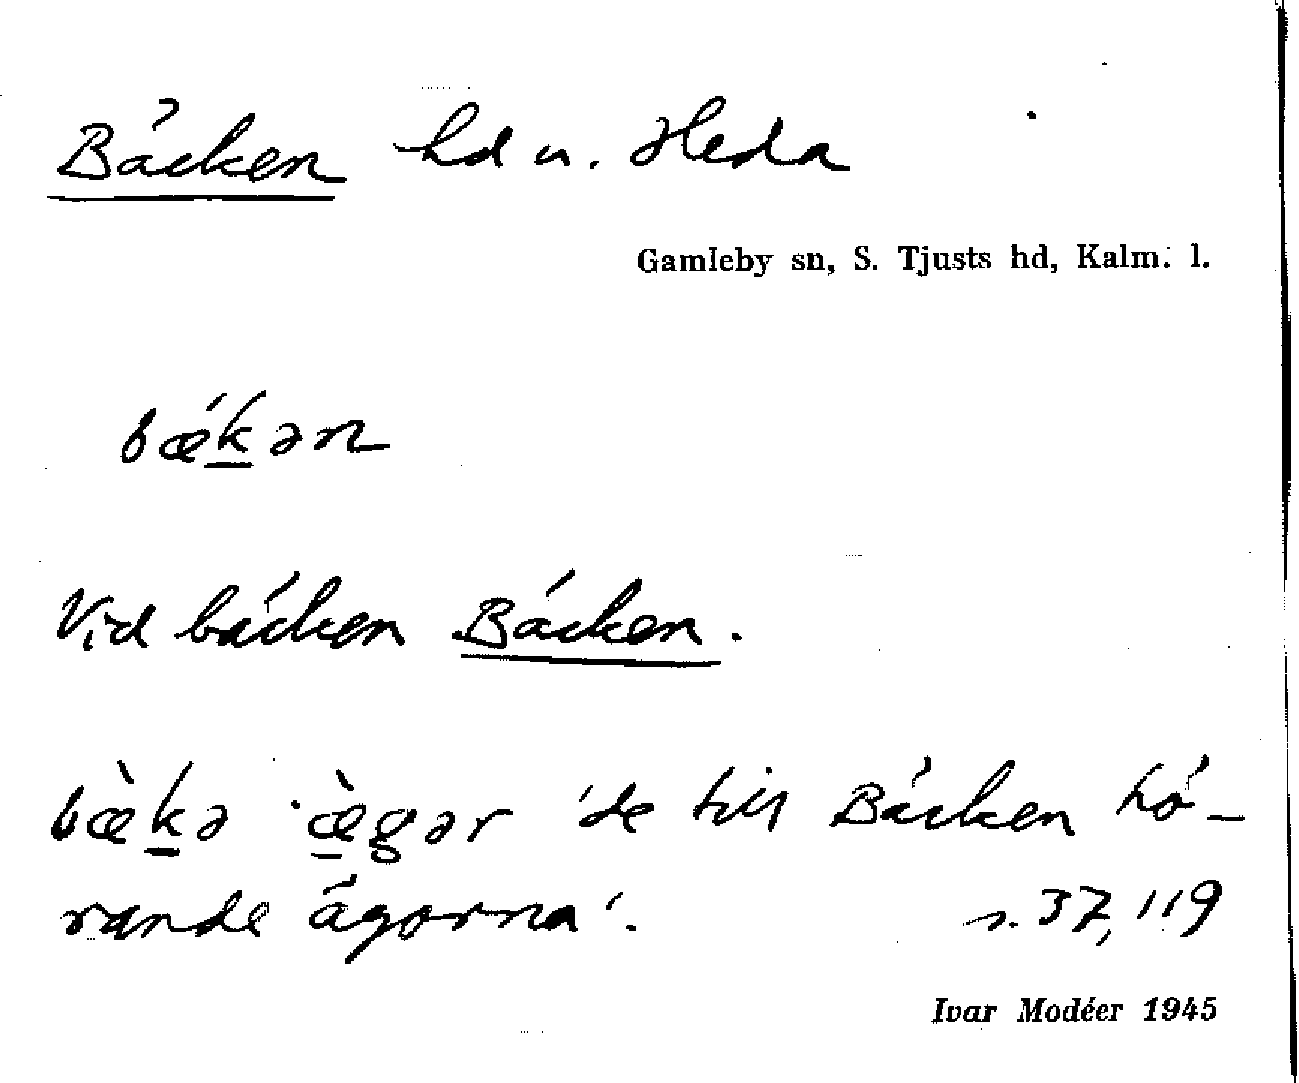 Bäcken hd u. Heda
Gamleby sn, S. Tjusts hd, Kalm. l.
bǽkən
Vid bäcken Bäcken.
bæ̀kə ˈæ̀gər 'de till Bäcken hö-
rande ägorna'. s. 37, 119
Ivar Modéer 1945